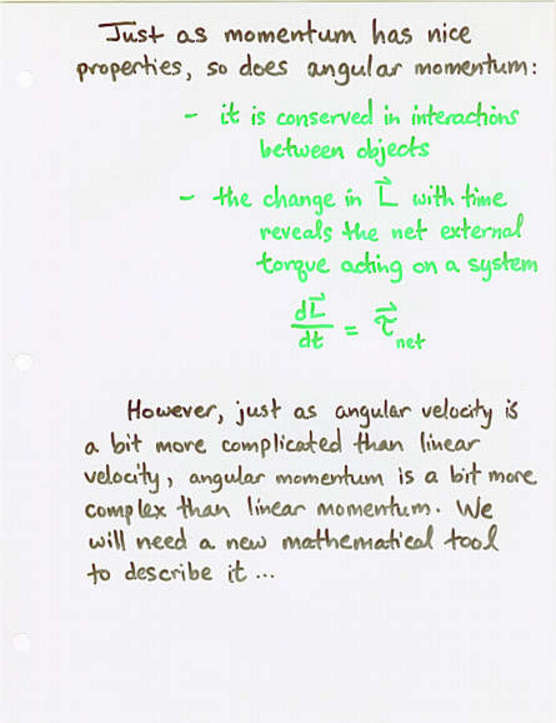 Just as momentum has nice
properties, so does angular momentum:
- it is conserved in interactions
between objects
- the change in L⃗ with time
reveals the net external
torque acting on a system
dL⃗/dt = τ⃗net
However, just as angular velocity is
a bit more complicated than linear
velocity, angular momentum is a bit more
complex than linear momentum. We
will need a new mathematical tool
to describe it ...